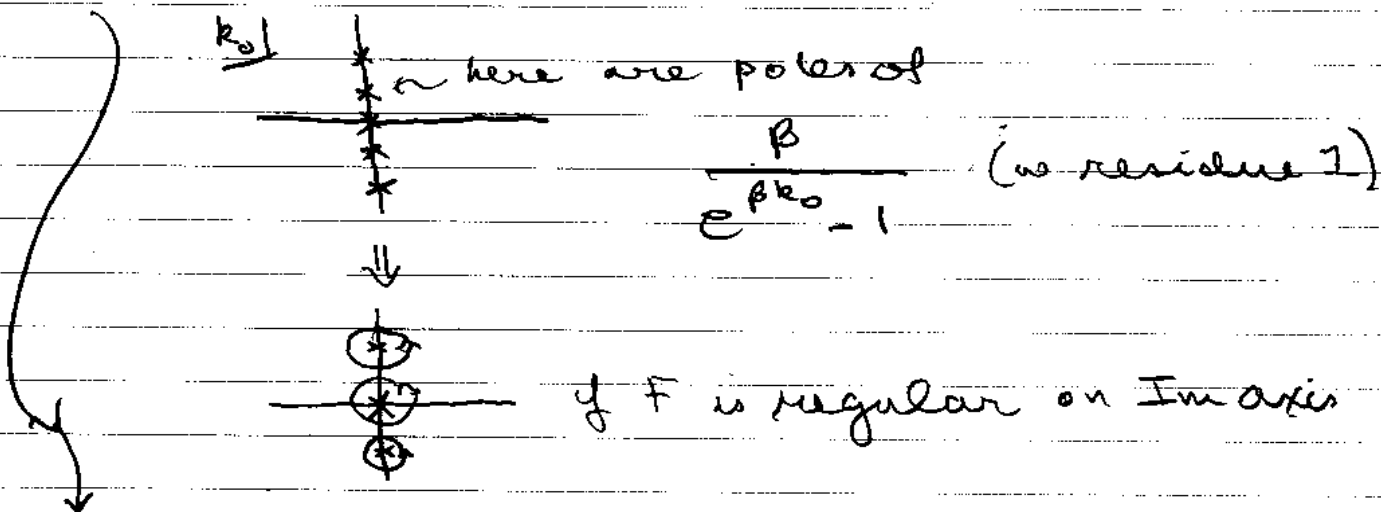 k₀
here are poles of
β / (e^{βk₀} - 1) (w residue 1)
⇓
if F is regular on Im axis